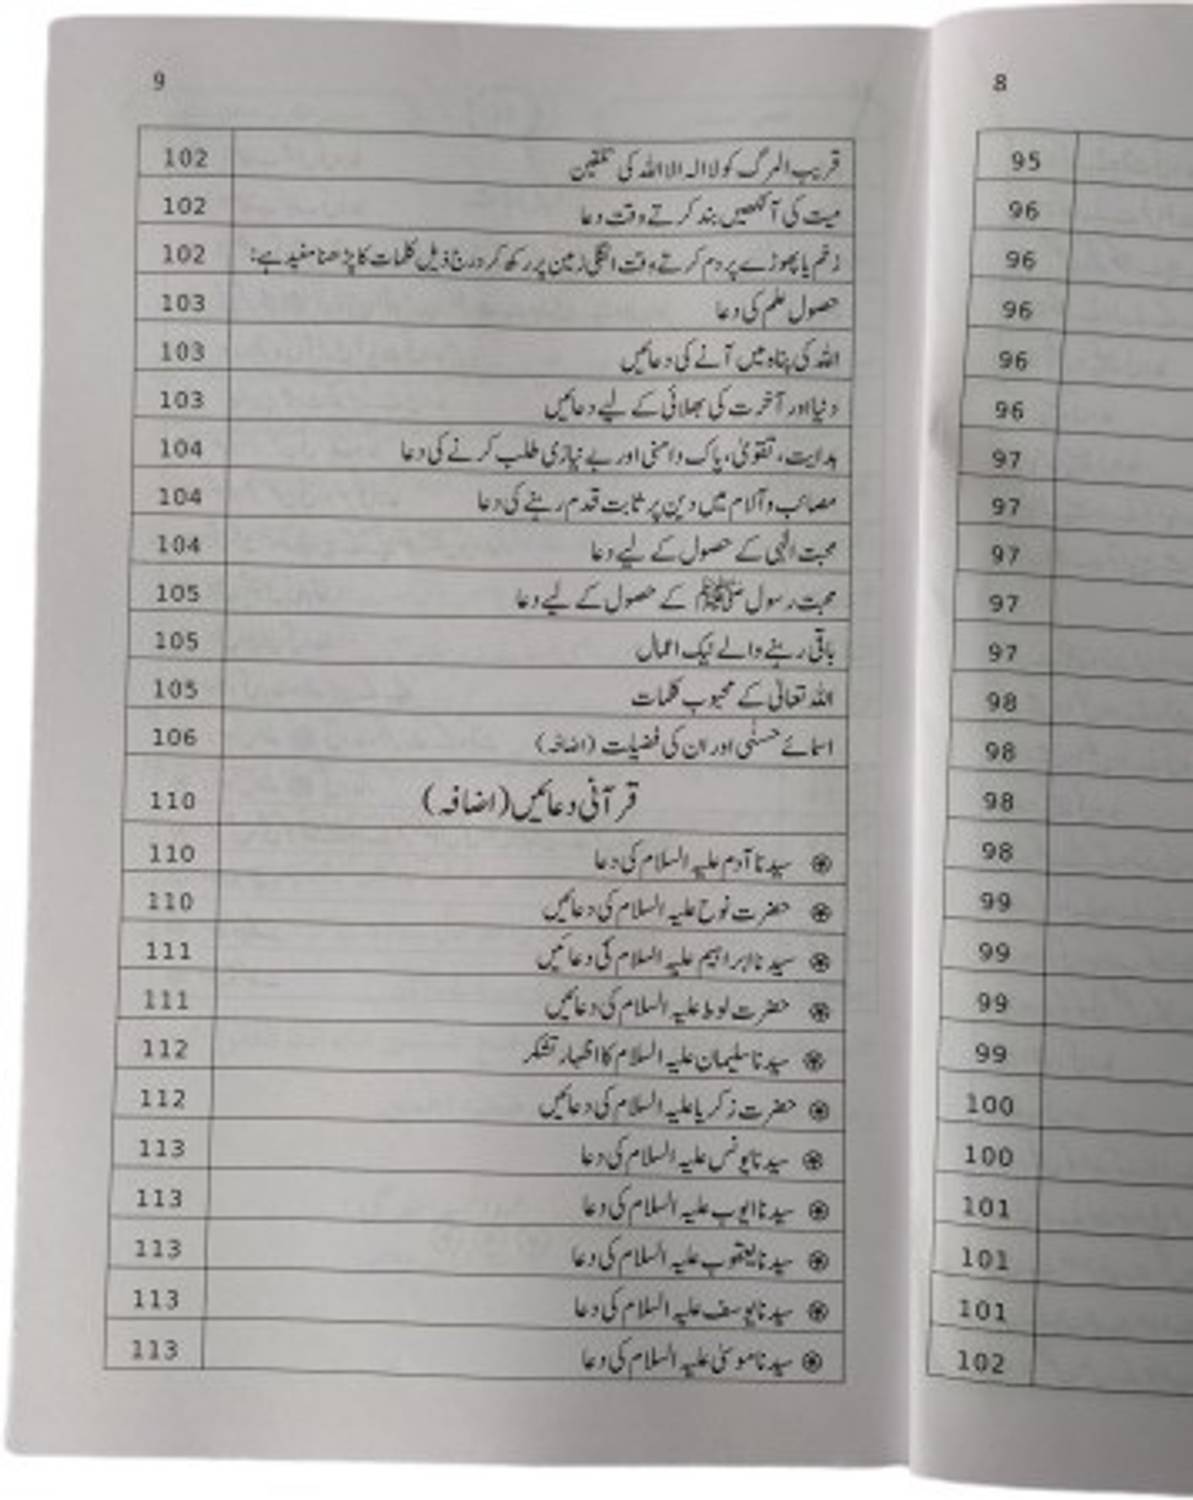 8
95
96
96
96
96
96
97
97
97
97
97
98
98
98
98
99
99
99
99
100
100
101
101
101
102
9
قریب المرگ کو لا الہ الا اللہ کی تلقین 102
میت کی آنکھیں بند کرتے وقت دعا 102
زخم یا پھوڑے پر دم کرتے وقت انگلی زمین پر رکھ کر درج ذیل کلمات کا پڑھنا مفید ہے: 102
حصول علم کی دعا 103
اللہ کی پناہ میں آنے کی دعائیں 103
دنیا اور آخرت کی بھلائی کے لیے دعائیں 103
ہدایت، تقویٰ، پاک دامنی اور بے نیازی طلب کرنے کی دعا 104
مصائب و آلام میں دین پر ثابت قدم رہنے کی دعا 104
محبت الٰہی کے حصول کے لیے دعا 104
محبت رسول ﷺ کے حصول کے لیے دعا 105
باقی رہنے والے نیک اعمال 105
اللہ تعالیٰ کے محبوب کلمات 105
اسمائے حسنٰی اور ان کی فضیلت (اضافہ) 106
قرآنی دعائیں (اضافہ) 110
سیدنا آدم علیہ السلام کی دعا 110
حضرت نوح علیہ السلام کی دعائیں 110
سیدنا ابراہیم علیہ السلام کی دعائیں 111
حضرت لوط علیہ السلام کی دعائیں 111
سیدنا سلیمان علیہ السلام کا اظہار تشکر 112
حضرت زکریا علیہ السلام کی دعائیں 112
سیدنا یونس علیہ السلام کی دعا 113
سیدنا ایوب علیہ السلام کی دعا 113
سیدنا یعقوب علیہ السلام کی دعا 113
سیدنا یوسف علیہ السلام کی دعا 113
سیدنا موسیٰ علیہ السلام کی دعا 113